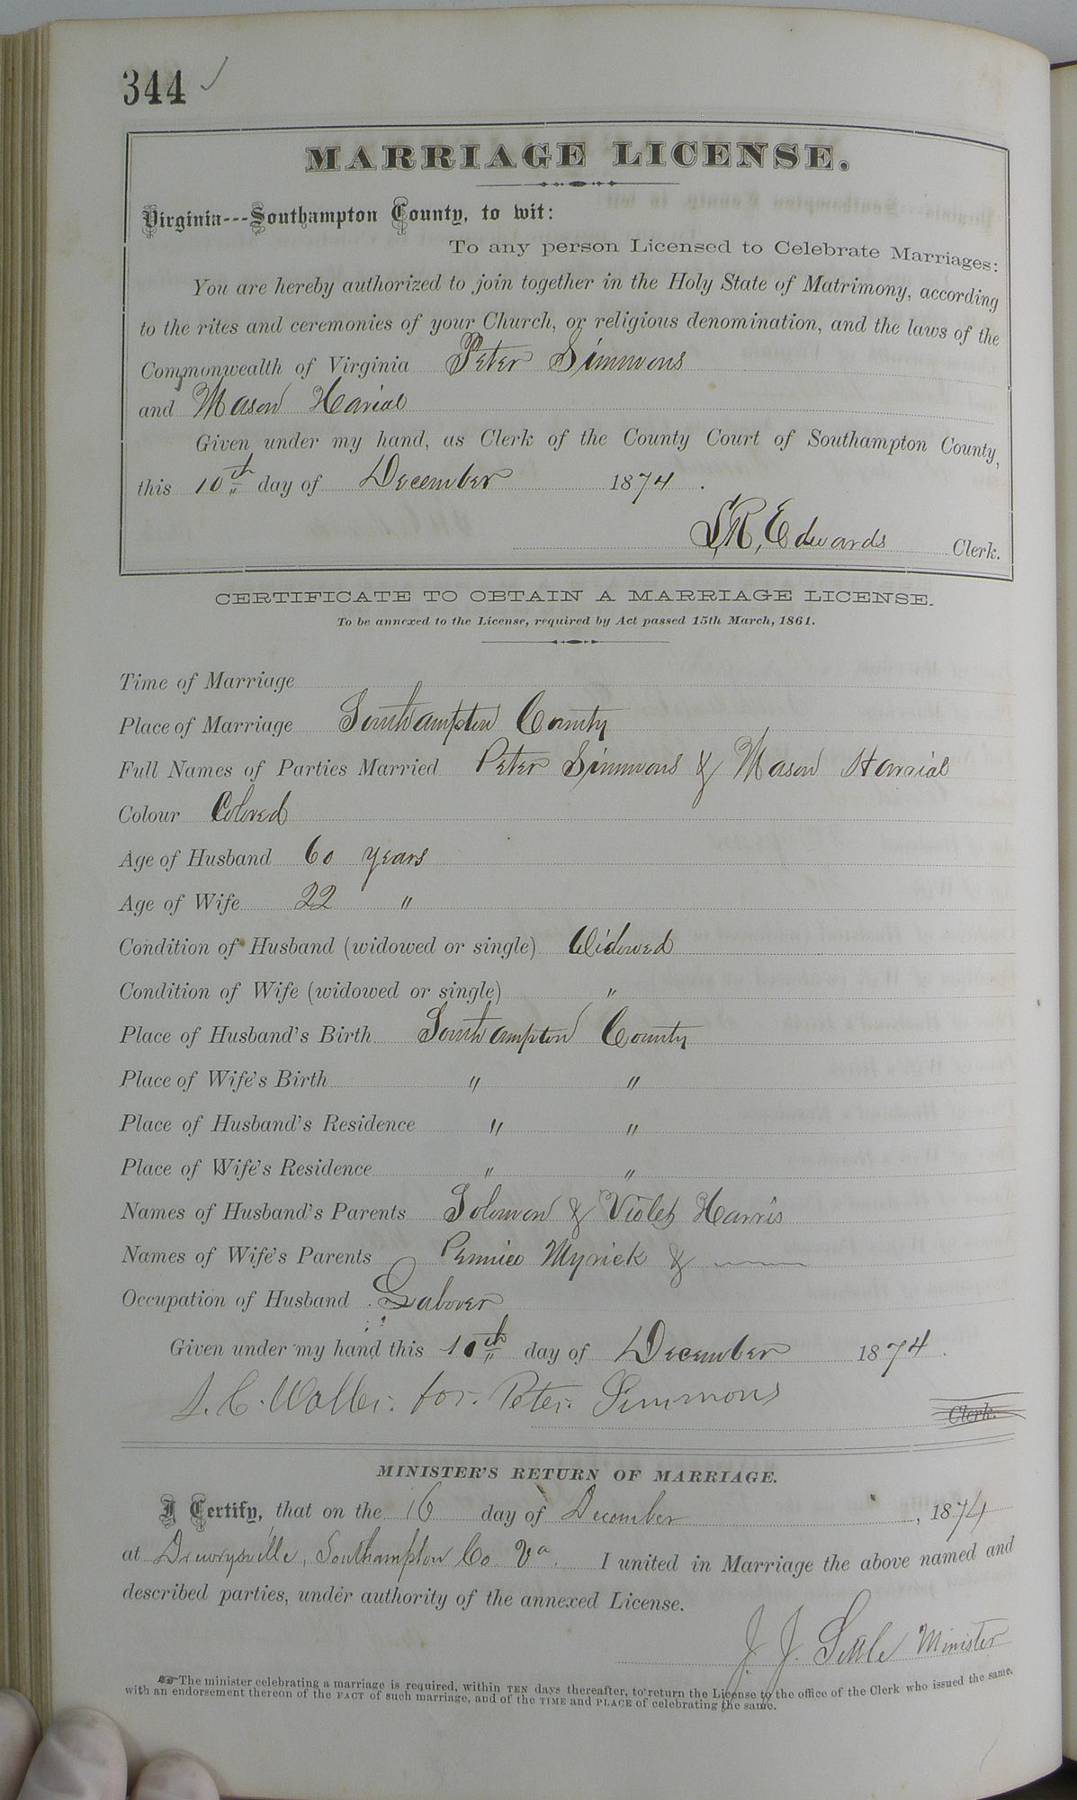 344 ✓
MARRIAGE LICENSE.
Virginia---Southampton County, to wit:
To any person Licensed to Celebrate Marriages:
You are hereby authorized to join together in the Holy State of Matrimony, according
to the rites and ceremonies of your Church, or religious denomination, and the laws of the
Commonwealth of Virginia Peter Simmons
and Mason Harial
Given under my hand, as Clerk of the County Court of Southampton County,
this 10th day of December 1874.
L, R, Edwards Clerk.
CERTIFICATE TO OBTAIN A MARRIAGE LICENSE.
To be annexed to the License, required by Act passed 15th March, 1861.
Time of Marriage
Place of Marriage Southampton County
Full Names of Parties Married Peter Simmons & Mason Harrial
Colour Colored
Age of Husband 60 years
Age of Wife 22 "
Condition of Husband (widowed or single) Widowed
Condition of Wife (widowed or single) "
Place of Husband's Birth Southampton County
Place of Wife's Birth " "
Place of Husband's Residence " "
Place of Wife's Residence " "
Names of Husband's Parents Solomon & Violet Harris
Names of Wife's Parents Myrick &
Occupation of Husband Labover
Given under my hand this 10th day of December 1874.
for. Peter. Simmons Clerk.
MINISTER'S RETURN OF MARRIAGE.
I Certify, that on the 16 day of December, 1874
at Drewrysville, Southampton Co Va. I united in Marriage the above named and
described parties, under authority of the annexed License.
J. J. Minister
☞ The minister celebrating a marriage is required, within TEN days thereafter, to return the License to the office of the Clerk who issued the same,
with an endorsement thereon of the FACT of such marriage, and of the TIME and PLACE of celebrating the same.